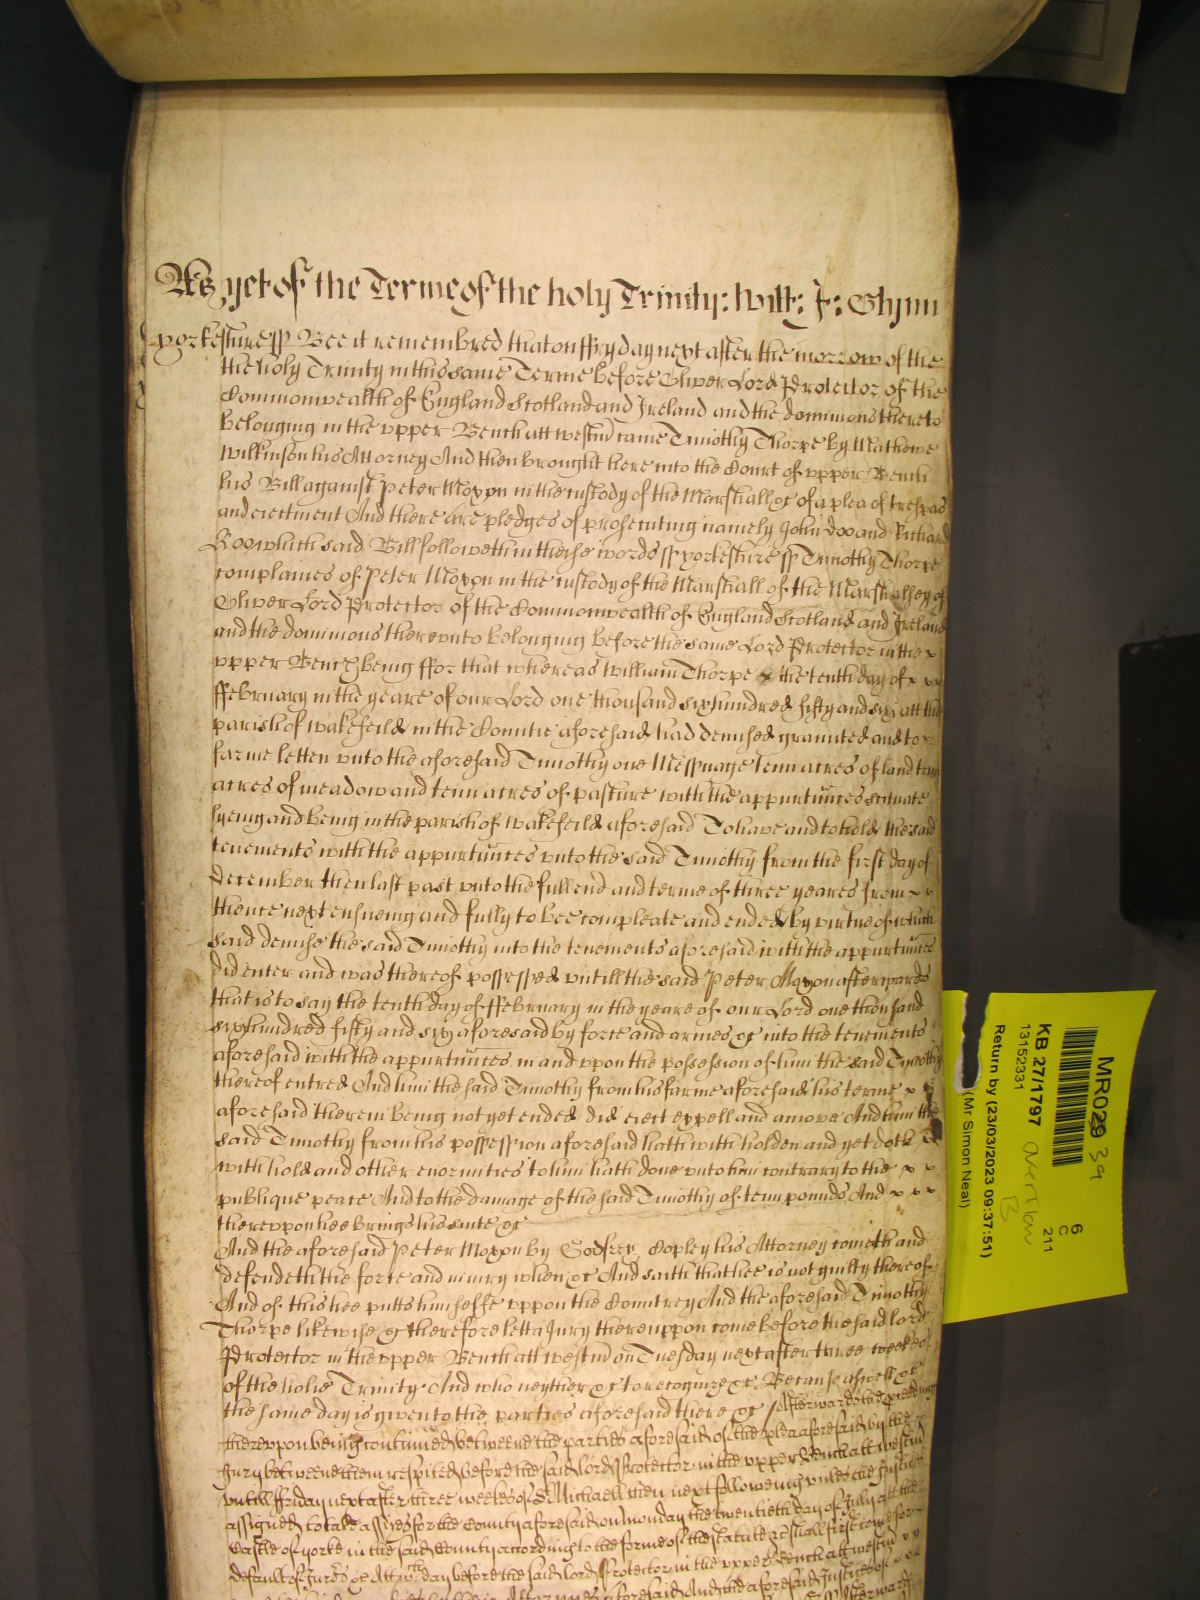 As yet of the Terme of the holy Trinity: Witt: J: Glynn
Yorkeshire ss Bee it remembred that on ffryday next after the morrow of the
the holy Trinity in this same Terme before Oliver Lord Protector of the
Commonwealth of England Scotland and Ireland and the dominions thereto
belonging in the upper Bench att westm̃ came Timothy Thorpe by Mathewe
Wilkinson his Attorney And then brought here into the Court of upper Bench
his Bill against Peter Moxon in the custody of the Marshall &c of a plea of trespas
and eiectment And there are pledges of prosecuting namely John Doo and Richard
Roo which said Bill followeth in theise words ss yorkeshire ss Timothy Thorpe
complaines of Peter Moxon in the custody of the Marshall of the Marshalsey of
Oliver Lord Protector of the Commonwealth of England Scotland and Ireland
and the dominions thereunto belonging before the same Lord Protector in the x
upper Bench being ffor that whereas William Thorpe x the tenth day of x xx
ffebruary in the yeare of our Lord one thousand sixhundred fifty and six att the
parish of Wakefeild in the Countie aforesaid had demised graunted and to x
farme letten unto the aforesaid Timothy one Messuage tenn acres of land tenn
acres of meadow and tenn acres of pasture with the appurtũnces scituate
lyeing and being in the parish of Wakefeild aforesaid To have and to hold the said
tenements with the appurtũnces unto the said Timothy from the first day of
December then last past unto the full end and terme of three yeares from x x
thence next ensueing and fully to bee compleate and ended by virtue of which
said demise the said Timothy into the tenements aforesaid with the appurtũnces
did enter and was thereof possessed untill the said Peter Moxon afterwards
that is to say the tenth day of ffebruary in the yeare of our Lord one thousand
sixhundred fifty and six aforesaid by force and armes &c into the tenements
aforesaid with the appurtũnces in and upon the possession of him the said Timothy
thereof entred And him the said Timothy from his farme aforesaid his terme x x
aforesaid therein being not yet ended did eiect expell and amove And him the
said Timothy from his possession aforesaid hath withholden and yet doth x
withhold and other enormities to him hath done unto him contrary to the x x
publique peace And to the damage of the said Timothy of tenn pounds And x x x
thereuppon hee brings his suite &c
And the aforesaid Peter Moxon by Godfrey Copley his Attorney cometh and
defendeth the force and iniury when &c And saith that hee is not guilty thereof
And of this hee putts himselfe uppon the Countrey And the aforesaid Timothy
Thorpe likewise &c therefore lett a Jury thereuppon come before the said lord
Protector in the upper Bench att westm̃ on Tuesday next after three weekes
of the holie Trinity And who neyther &c to recognize &c Because aswell &c
the same day is given to the parties aforesaid there &c Afterwards the proceeding
thereupon being continued betweene the parties aforesaid of the plea aforesaid by the
Jury betweene them respited before the said lord Protector in the upper Bench att westm̃
untill ffriday next after three weekes of St Michaell then next followeing unles the Justices
assigned to take assizes for the County aforesaid on monday the twentieth day of July att the
Castle of yorke in the said County according to the forme of the statute &c shall first come for
default of Jurors &c Att wch day before the said lord Protector in the upper Bench att westm̃ x x
aforesaid And the aforesaid Justices of
MR029 39
KB 27/1797
13152331
Return by (23/03/2023 09:37:51)
(Mr Simon Neal)
6
C
211
overflow
B